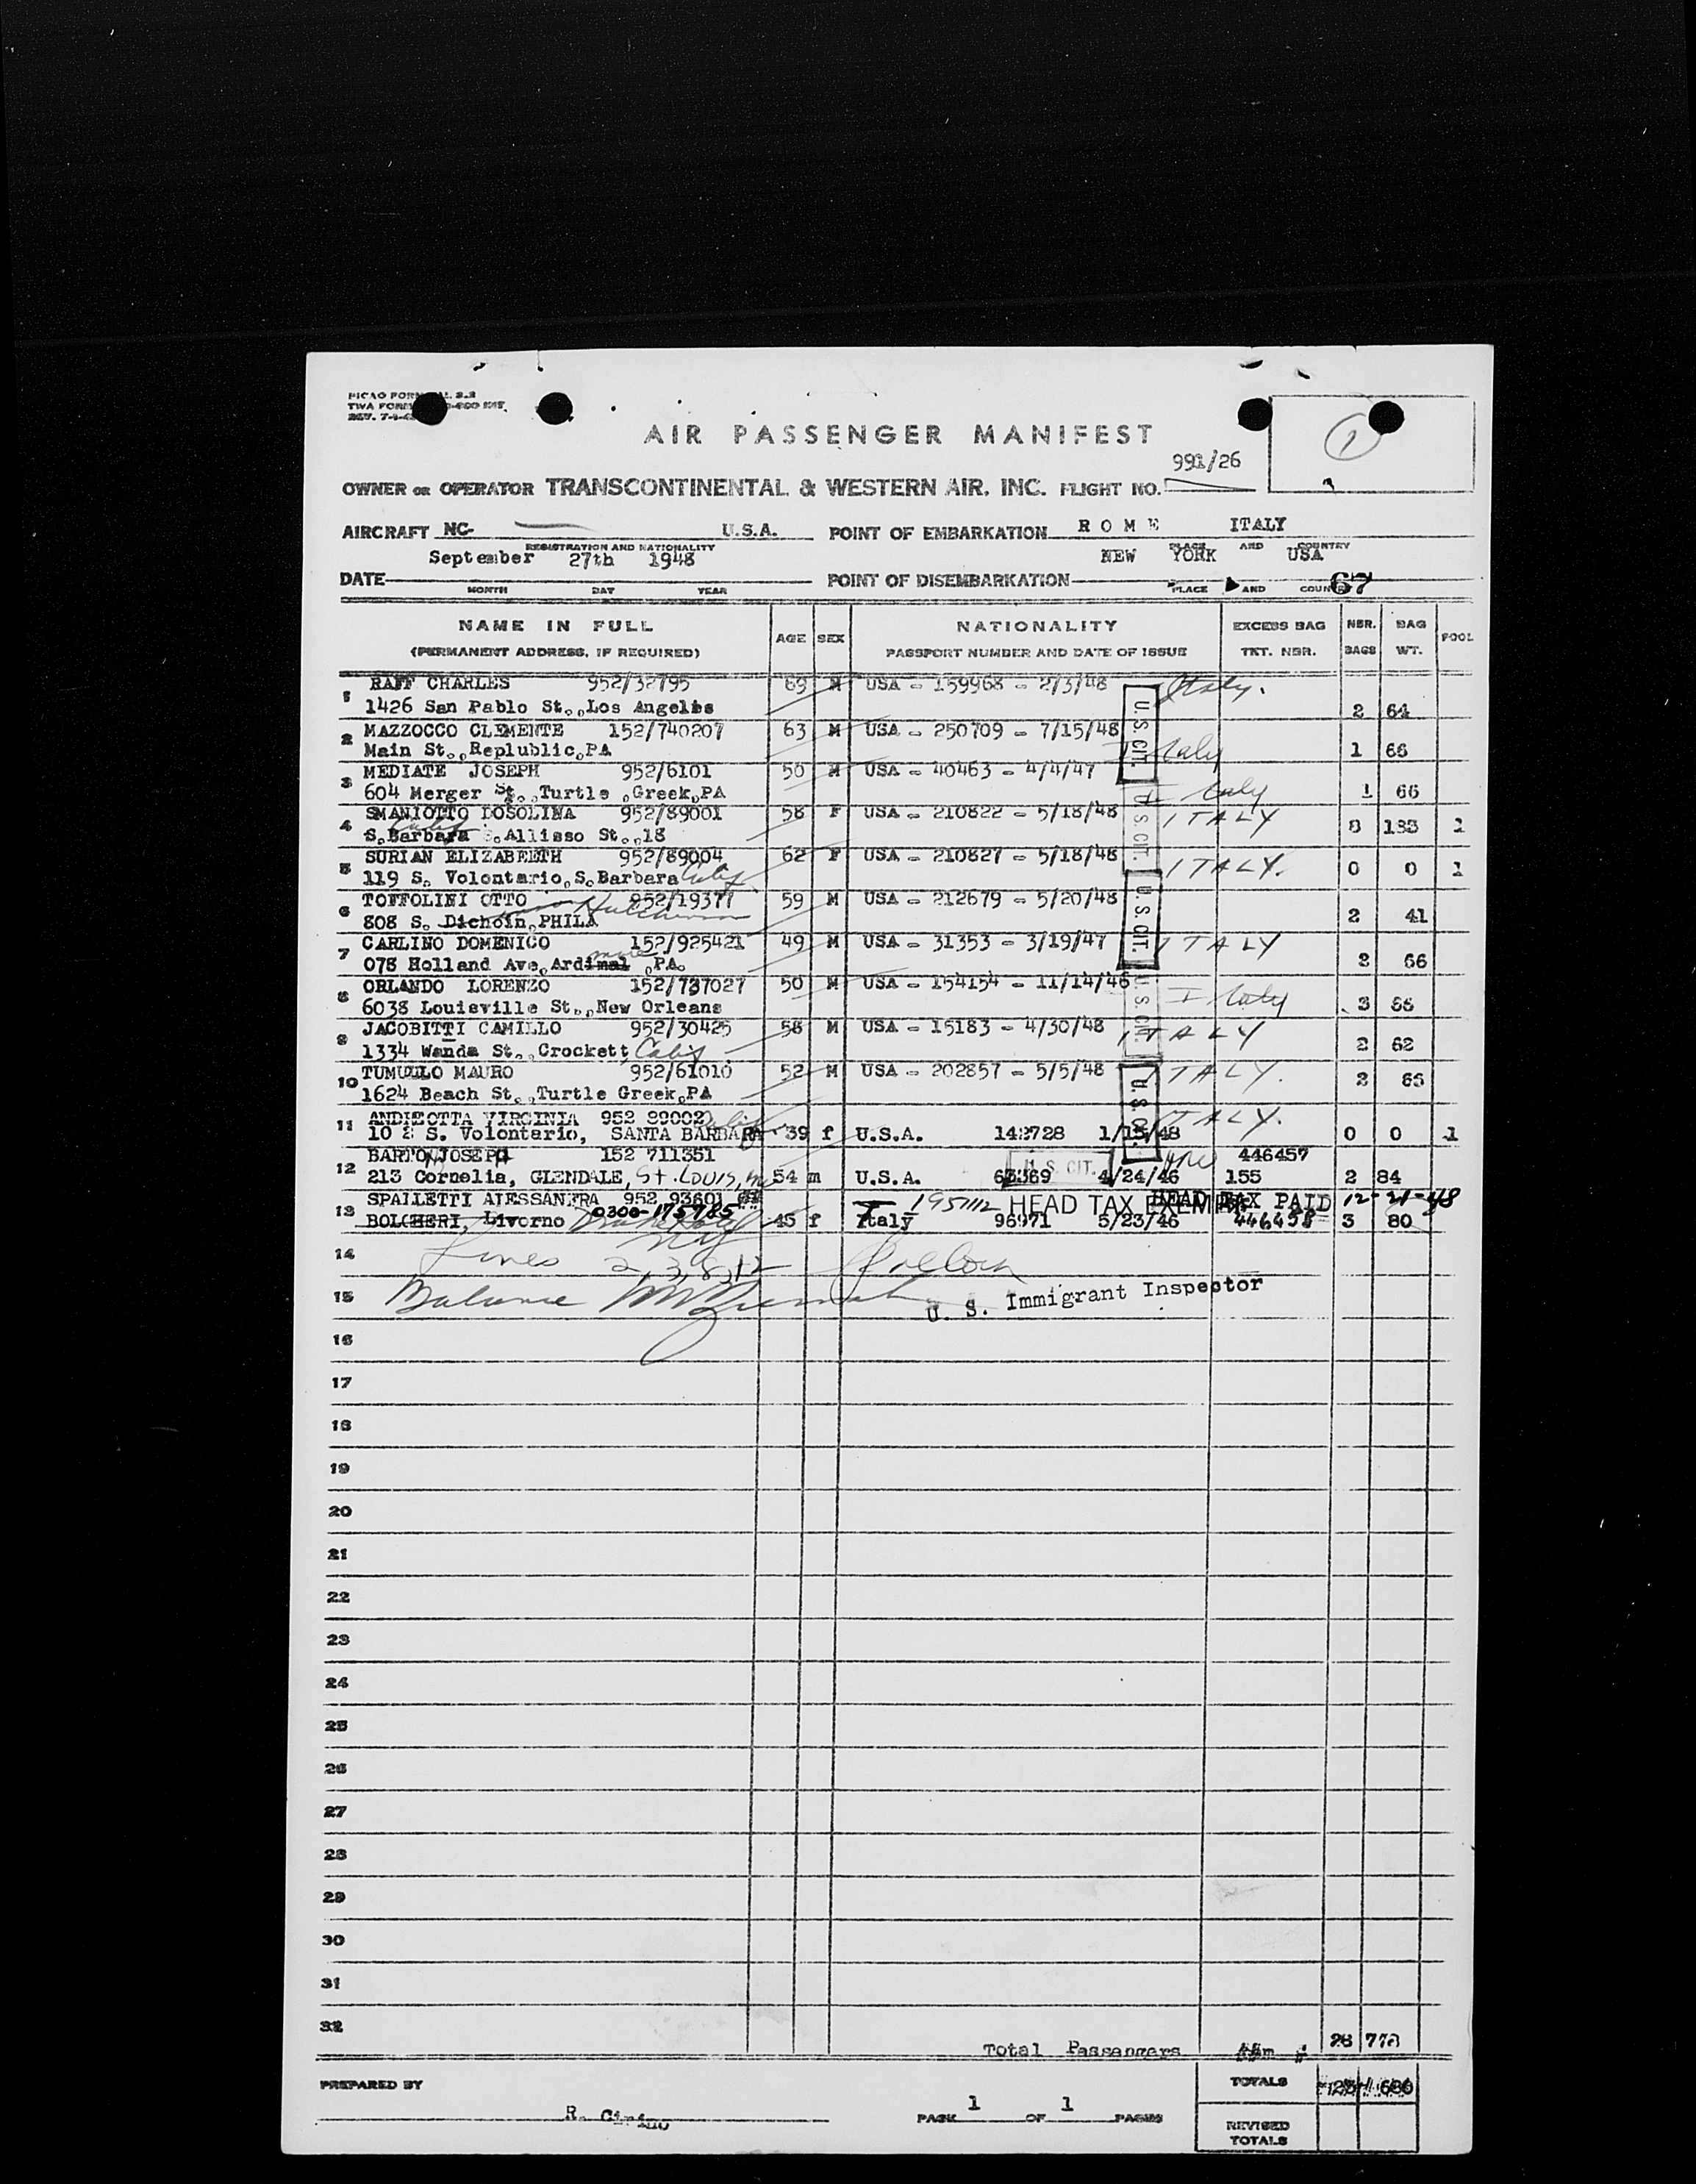 AIR PASSENGER MANIFEST
991/26
OWNER OR OPERATOR TRANSCONTINENTAL & WESTERN AIR, INC. FLIGHT NO.
AIRCRAFT NC- U.S.A. POINT OF EMBARKATION ROME ITALY
REGISTRATION AND NATIONALITY PLACE AND COUNTRY
September 27th 1948 NEW YORK USA
DATE POINT OF DISEMBARKATION 67
MONTH DAY YEAR PLACE AND
NAME IN FULL AGE SEX NATIONALITY EXCESS BAG NBR. BAG POOL
(PERMANENT ADDRESS, IF REQUIRED) PASSPORT NUMBER AND DATE OF ISSUE TKT. NBR. BAGS WT.
1 RAFF CHARLES 952/32795 69 M USA - 159968 - 2/3/48 Italy.
1426 San Pablo St.,Los Angeles 2 64
2 MAZZOCCO CLEMENTE 152/740207 63 M USA - 250709 - 7/15/48 U.S. CIT.
Main St.,Replublic,PA Italy 1 66
3 MEDIATE JOSEPH 952/6101 50 M USA - 40463 - 4/4/47
604 Merger St.,Turtle ,Greek,PA Italy 1 66
4 SMANIOTTO DOSOLINA 952/89001 58 F USA - 210822 - 5/18/48 U.S. CIT. ITALY
S.Barbara Calif S.Allisso St.,18 8 133 1
5 SURIAN ELIZABEETH 952/89004 62 F USA - 210827 - 5/18/48 ITALY.
119 S. Volontario,S.Barbara Calif 0 0 1
6 TOFFOLINI OTTO 952/19377 59 M USA - 212679 - 5/20/48 U.S. CIT.
808 S. Dichoin,PHILA 2 41
7 CARLINO DOMENICO 152/925421 49 M USA - 31353 - 3/19/47 ITALY
078 Holland Ave,Ardimal more ,PA. 2 66
8 ORLANDO LORENZO 152/737027 50 M USA - 154154 - 11/14/46 U.S. CIT.
6038 Louisville St.,New Orleans Italy 3 66
9 JACOBITTI CAMILLO 952/30425 58 M USA - 15183 - 4/30/48 ITALY
1334 Wanda St.,Crockett Calif 2 62
10 TUMULLO MAURO 952/61010 52 M USA - 202857 - 5/5/48 U.S. CIT. ITALY.
1624 Beach St.,Turtle Greek,PA 2 65
11 VIRGINIA 952 89002 Calif ITALY.
S. Volontario, SANTA BARBARA 39 f U.S.A. 142728 1/15/48 0 0 1
BARTON JOSEPH 152 711351 U.S. CIT. 446457
12 213 Cornelia, GLENDALE, St. Louis, Mo 54 m U.S.A. 63369 4/24/46 155 2 84
SPALLETTI ALESSANDRA 952 93601 0300-175785 HEAD TAX EXEMPT HEAD TAX PAID 12-21-48
13 BOLGHERI, Livorno 45 f Italy 96971 5/23/46 446458 3 80
14 Lines 2,3,8,12
15 Balance
U. S. Immigrant Inspector
16
17
18
19
20
21
22
23
24
25
26
27
28
29
30
31
32
Total Passengers 28 778
TOTALS 680
PREPARED BY R. Cirino PAGE 1 OF 1 PAGES
REVISED TOTALS